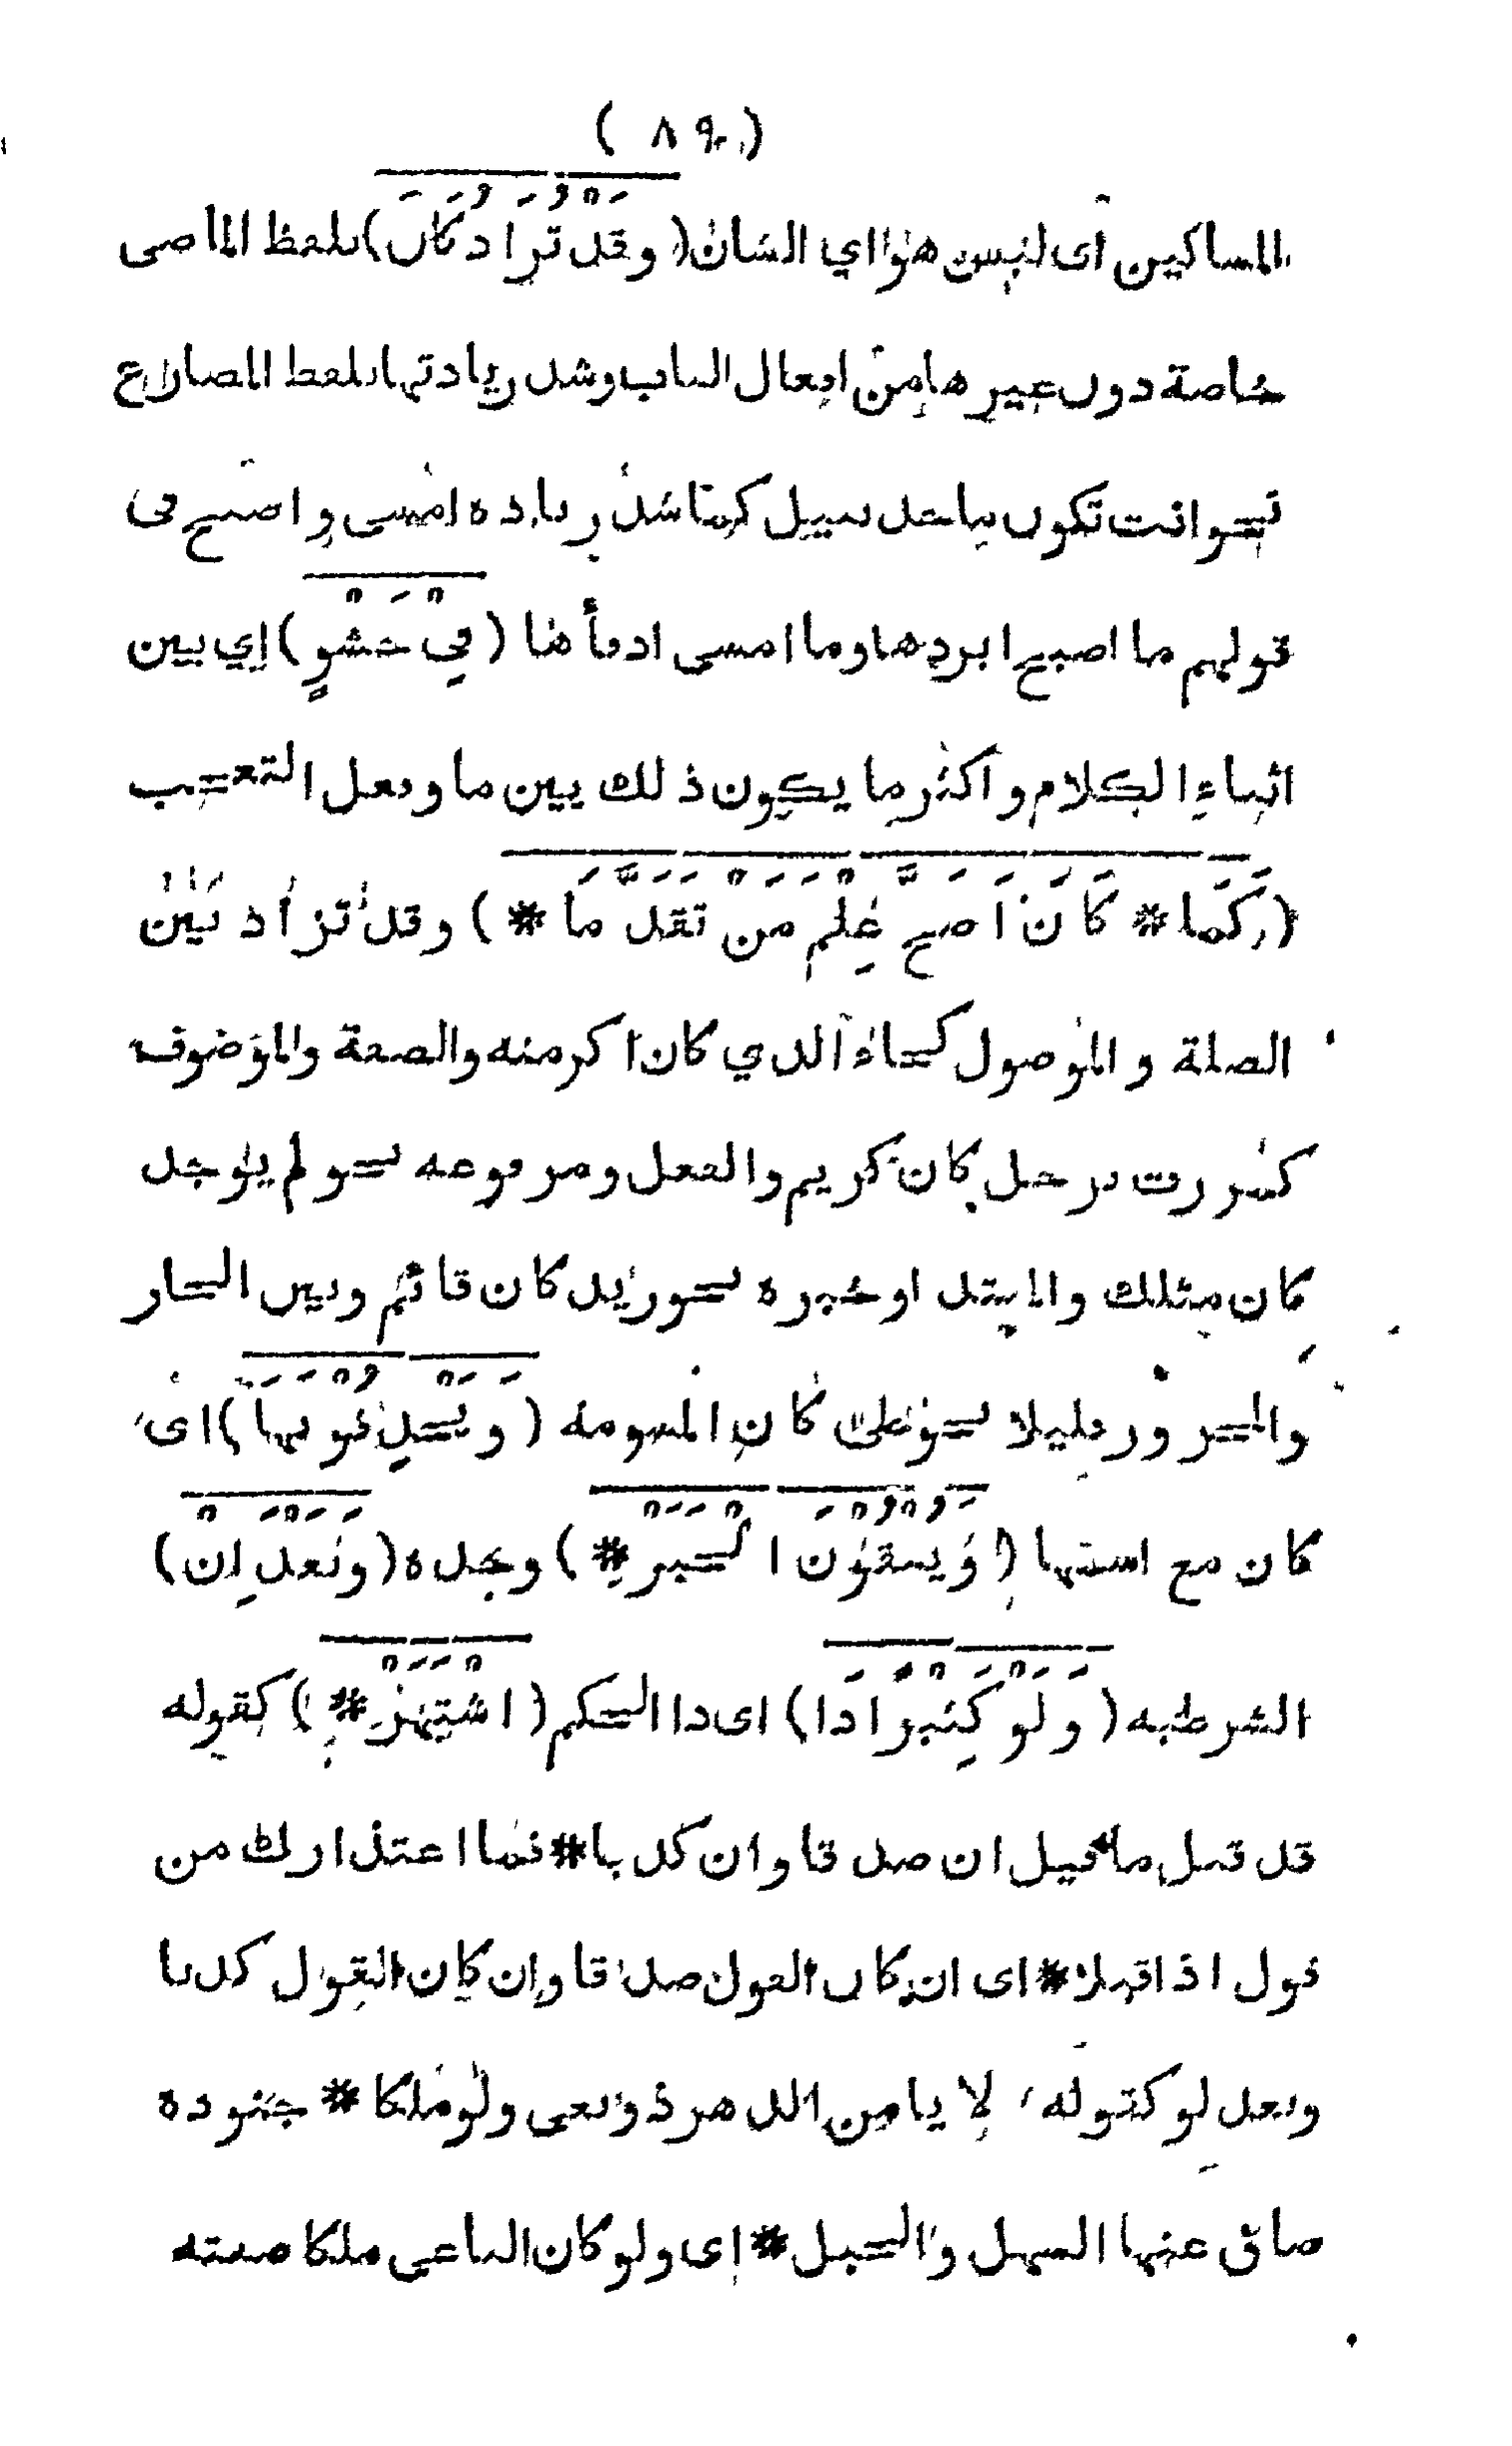 ( ٨٩ )
المساكين اى ليس هو اي الشان ( وقد تُزَادُ كَانَ ) بلفظ الماضى
خاصة دون غيرها من افعال الباب وشد زيادتها بلفظ المضارع
نحو انت تكون ماجد نبيل كما شد زيادة امسى واصبح في
قولهم ما اصبح ابردها وما امسى ادفأ ها ( فِيْ حَشْوٍ ) اي بين
اثناء الكلام واكثر ما يكون ذلك بين ما وفعل التعجب
( كَمَا * كَانَ اَصَحَّ عِلْمَ مَنْ تَقَدَّمَا * ) وقد تزاد بين
الصلة والموصول كجاء الذي كان اكرمته والصفة والموصوف
كمررت برجل كان كريم والفعل ومرفوعه نحو لم يوجد
كان مثلك والمبتدا وخبره نحو زيد كان قائم وبين الجار
والمجرور قليلا نحو على كان المسومة ( وَيَحْذِفُوْنَهَا ) اى
كان مع اسمها ( وَيُبْقُوْنَ الْخَبَرْ * ) وحده ( وَبَعْدَ اِنْ )
الشرطية ( وَلَوْ كَثِيْرًا ذَا ) اى ذا الحكم ( اشْتَهَرْ * ) كقوله
قد قيل ما قيل ان صدقا وان كذبا * فما اعتذارك من
قول اذا قيلا * اى ان كان القول صدقا وان كان القول كذبا
وبعد لو كقوله لا يامن الدهر ذو بغى ولو ملكا * جنوده
ضاق عنها السهل والجبل * اى ولو كان الباغى ملكا صفته